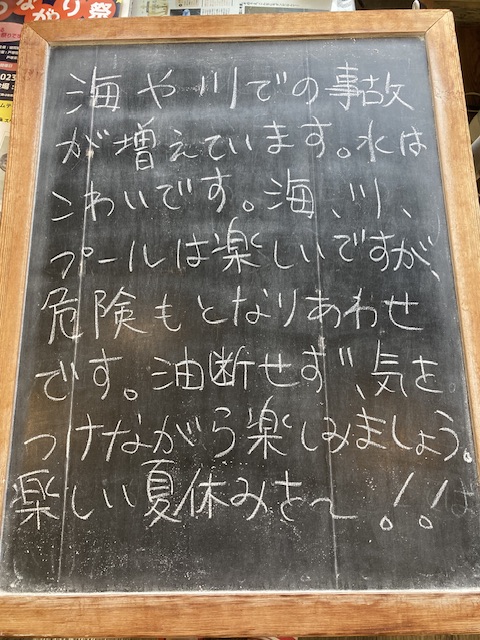 海や川での事故
が増えています。水は
こわいです。海、川、
プールは楽しいですが、
危険もとなりあわせ
です。油断せず、気を
つけながら楽しみましょう。
楽しい夏休みを〜!!